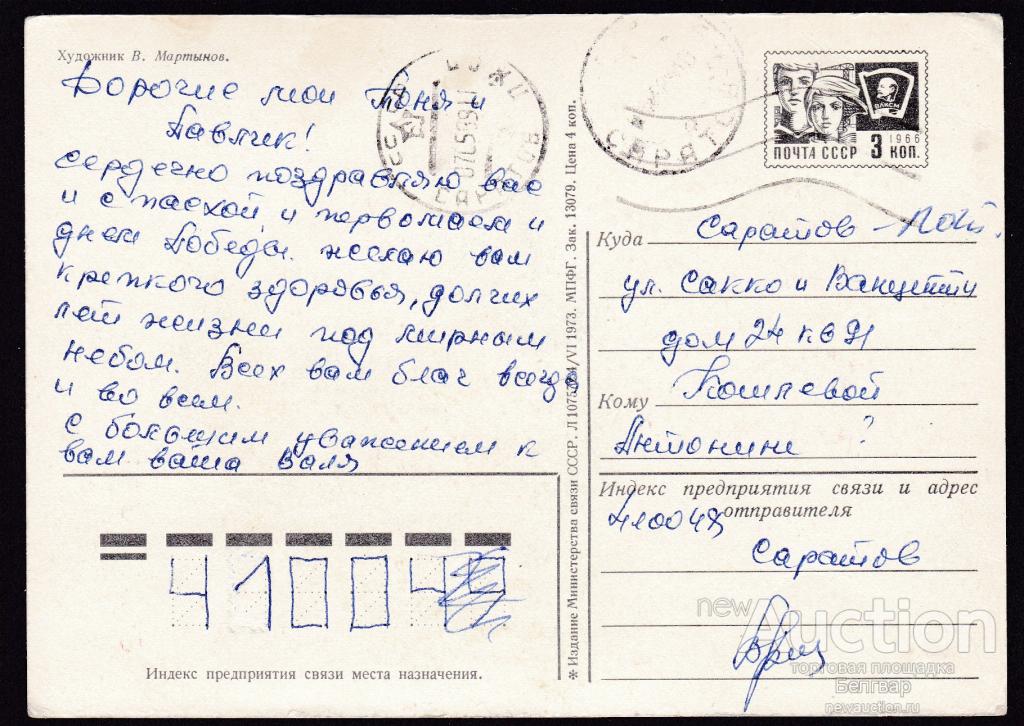 Художник В. Мартынов.
Дорогие мои Тоня и
Павлик!
Сердечно поздравляю вас
и с пасхой и первомаем и
днем Победы. желаю вам
крепкого здоровья, долгих
лет жизни под мирным
небом. Всех вам благ всегда
и во всем.
с большим уважением к
вам ваша Валя
ВЛКСМ
1966
ПОЧТА СССР 3 КОП.
САРАТОВ
САРАТОВ
Куда Саратов
ул. Сакко и Ванцетти
дом 24 кв 91
Кому Кошлевой
Антонине ?
Индекс предприятия связи и адрес
отправителя
Саратов
41004
Индекс предприятия связи места назначения.
✻ Издание Министерства связи СССР. МПФГ. Зак. 13079. Цена 4 коп.
newAuction
торговая площадка
Белгвар
newauction.ru